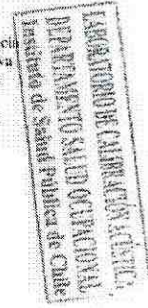 LABORATORIO DE CALIBRACIÓN ACÚSTICA
DEPARTAMENTO SALUD OCUPACIONAL
Instituto de Salud Pública de Chile